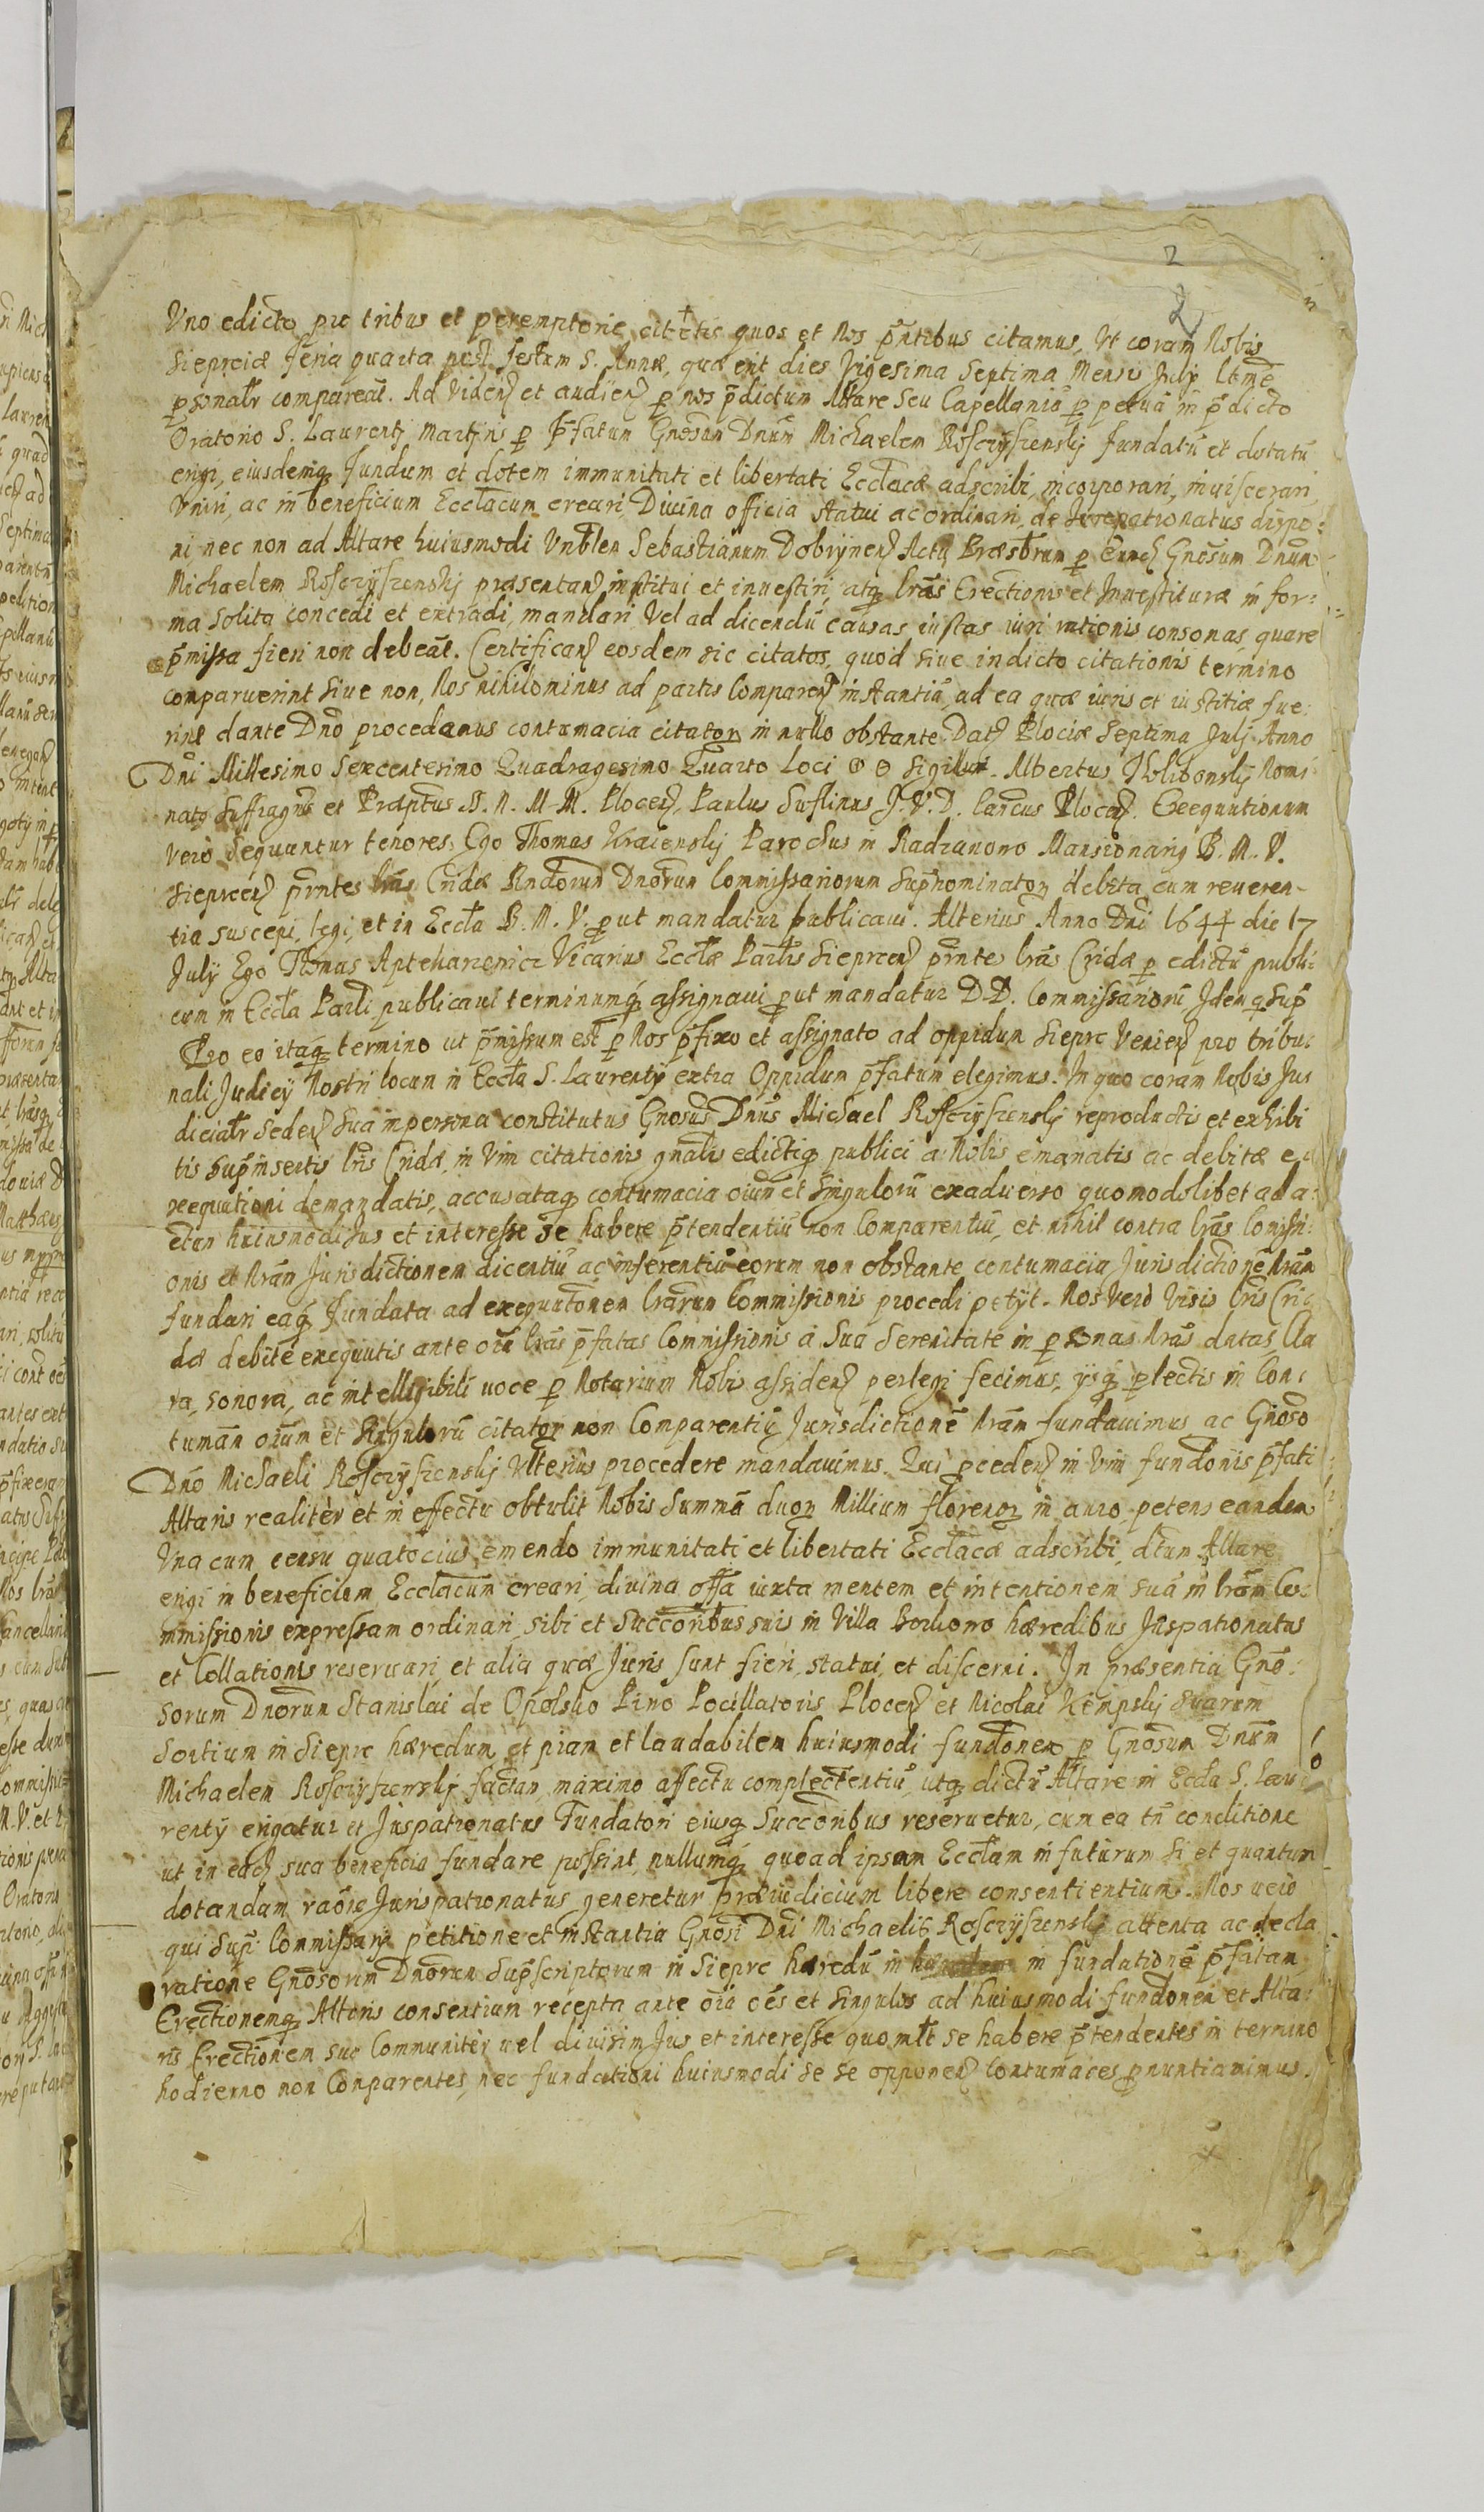 2
2
Uno edicto pro tribus et peremptorie citetis quos et Nos pñtibus citamus, Ut coram Nobis
Sieprciæ Feria quarta post festum S. Annæ, quæ erit dies Vigesima Septima Mensis Julij ltme
psonalr compareãt. Ad Videñ et audieñ p nos pdictum Altare Seu Capellaniã ppetuã in pdicto
Oratorio S. Laurentij Martyris p Pfatum Gnosum Dnum Michaelem Rosczyszewskij Fundatũ et dotatũ
erigi, eiusdemq Fundum et dotem immunitati et libertati Ecclãcæ adscribi, incorporari, inuiscerari,
Uniri, ac in beneficium Ecclãcum creari, Diuina officia statui ac ordinari, de Jurepatronatus dispo:
ni, nec non ad Altare huiusmodi Vnblem Sebastianum Dobrzyneñ Actu Præsbrum p Eundẽ Gnosum Dnum
Michaelem Rosczyszewskij præsentañ institui et inuestiri, atq lrãs Erectionis et Inuestituræ in for:
ma solita concedi et extradi, mandari, Vel ad dicendũ causas iustas iuri rationis consonas, quare
pmissa fieri non debeãt. Certificañ eosdem sic citatos, quod siue in dicto citationis termino
comparuerint siue non, Nos nihilominus ad partis Compareñ instantiã, ad ea quæ iuris et iustitiæ fue:
rint dante Dno procedamus contumacia citator in nullo obstante. Dat Plociæ Septima Julj Anno
Dni Millesimo Sexcentesimo Quadragesimo Quarto Loci Sigilli. Albertus Tholibowskij Nomi:
natus Suffragns et Præptus S. N. M. M. Ploceñ. Paulus Suslinus J. V. D. Cancus Ploceñ. Exequutionum
vero sequuntur tenores. Ego Thomas Kraiewskij Parochus in Radzanowo Mansionarig B. M. V.
Siepreeñ pñntes lrãs Cridæ Rndorum Dnorum Commissariorum Supnominator debita cum reueren-
tia suscepi, legi, et in Eccla B. M. V. put mandatur publicaui. Alterius Anno Dni 1644 die 17
Julij Ego Thomas Aptekarzewicz Vicarius Ecclæ Parlis Siepreeñ pñntes lrãs Cridæ p edictũ publi:
cum in Eccla Parli publicaui terminumq assignaui put mandatur D. D. Commissariorũ Idem q Sup
Pro eo itaq termino ut pmissum est p Nos pfixo et assignato ad oppidum Sieprc Venieñ pro tribu:
nali Judicij Nostri locum in Eccla S. Laurentij extra Oppidum pfatum elegimus. In quo coram Nobis Ju
dicialr Sedeñ Sua in persona constitutus Gnosus Dnus Michael Rosczyszewskij reproductis et exhibi
tis supinsertis lris Cridæ, in Vim citationis gnalis edictiq publici a Nobis emanatis ac debitæ e
xequutioni demandatis, accusataq contumacia oium et Singulorũ exaduerso quomodolibet ad a:
ctum huiusmodi Jus et interesse Se habere ptendentiũ non Comparentiũ, et nihil contra lrãs Comissi:
onis et Nrãm Jurisdictionem dicentiũ ac inferentiũ eorum non obstante contumacia, Jurisdictionẽ Nrãm
fundari eaq Fundata ad exequutonem lrarum Commissionis procedi petijt. Nos Vero Visis lris Cri
dæ debite exequutis ante oia lrãs pfatas Commissionis a Sua Serenitate in personas Nrãs datas Cla
ra, sonora, ac intelligibili uoce p Notarium Nobis assideñ perlegi fecimus, ijsq plectis in Con:
tumam oium et Singulorũ citator non Comparentiũ Jurisdictionẽ Nrãm fundauimus ac Gnoso
Dno Michaeli Rosczyszewskij Ulterius procedere mandauimus. Qui pcedeñ in Vim fundonis pfati
Altaris realiter et in effectu obtulit Nobis Summã duor Millium florenor in auro, petens eandem
Una cum censu quatocius emendo immunitati et libertati Ecclacæ adscribi, dtum Altare
erigi in beneficium Ecclacum creari, diuina offa iuxta mentem et intentionem suã in lris Co:
mmissionis expressam ordinari, sibi et Succoribus suis in Villa Borkowo hæredibus Juspatronatus
et Collationis reseruari, et alia quæ Juris sunt fieri, statui, et discerni. In præsentia Gno:
sorum Dnorum Stanislai de Opolsko Pino Pocillatoris Ploceñ et Nicolai Kempskij Suarum
Sortium in Sieprc hæredum et piam et laudabilem huiusmodi fundonem p Gnosum Dnum
Michaelem Rosczyszewskij factam, maximo affectu complectentiũ, utq dictũ Altare in Eccla S. Lau:
rentij erigatur et Juspatronatus Fundatori eiusq Succoribus reseruetur, cum ea tñ conditione
ut in eadẽ sua beneficia fundare possint, nullumq quoad ipsam Ecclam in futurum si et quantum
dotandam raone Jurispatronatus generetur præiudicium libere consentientium. Nos uero
qui Sup Commissarij petitione et instantia Gnosi Dni Michaelis Rosczyszewskij attenta ac decla
ratione Gnosorum Dnorum Supscriptorum in Sieprc hæredũ in fundationẽ pfatam
Erectionemq Altaris consensum recepta ante oia oẽs et Singulos ad huiusmodi fundonem et Alta:
ris Erectionem siue Communiter uel diuisim Jus et interesse quomlt se habere ptendentes in termino
hodierno non Conparentes, nec fundationi huiusmodi se se opponeñ Contumaces pnuntiauimus.